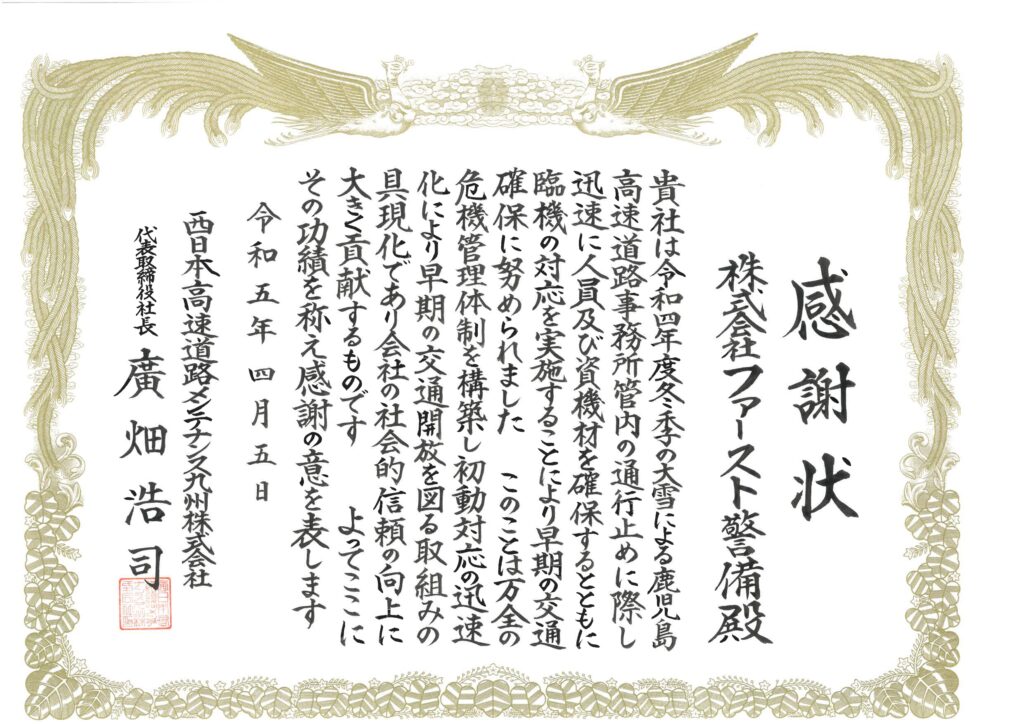 感謝状
株式会社ファースト警備殿
貴社は令和四年度冬季の大雪による鹿児島
高速道路事務所管内の通行止めに際し
迅速に人員及び資機材を確保するとともに
臨機の対応を実施することにより早期の交通
確保に努められました　このことは万全の
危機管理体制を構築し初動対応の迅速
化により早期の交通開放を図る取組みの
具現化であり会社の社会的信頼の向上に
大きく貢献するものです　よってここに
その功績を称え感謝の意を表します
令和五年四月五日
西日本高速道路メンテナンス九州株式会社
代表取締役社長　廣畑浩司